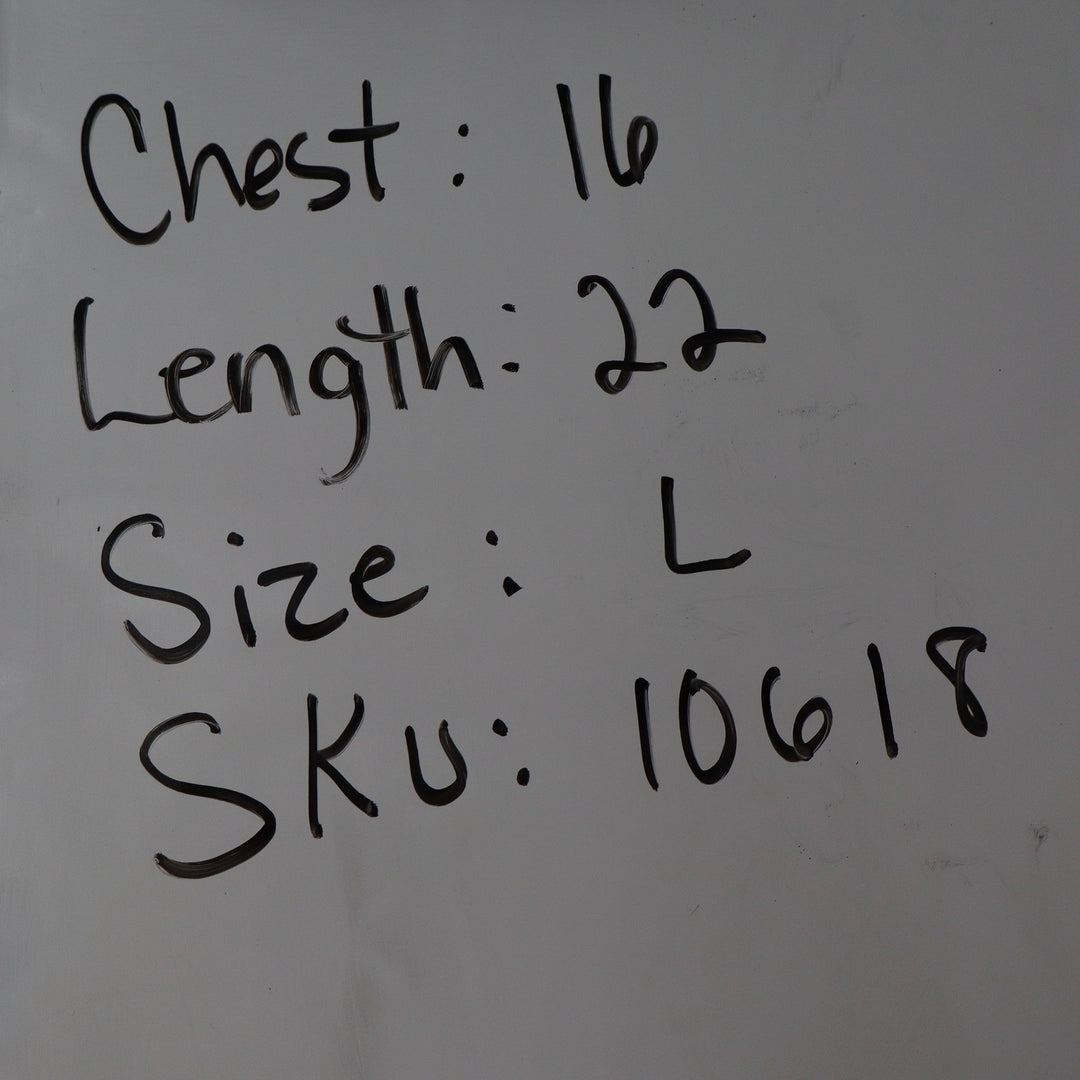 Chest: 16
Length: 22
Size: L
SKU: 10618